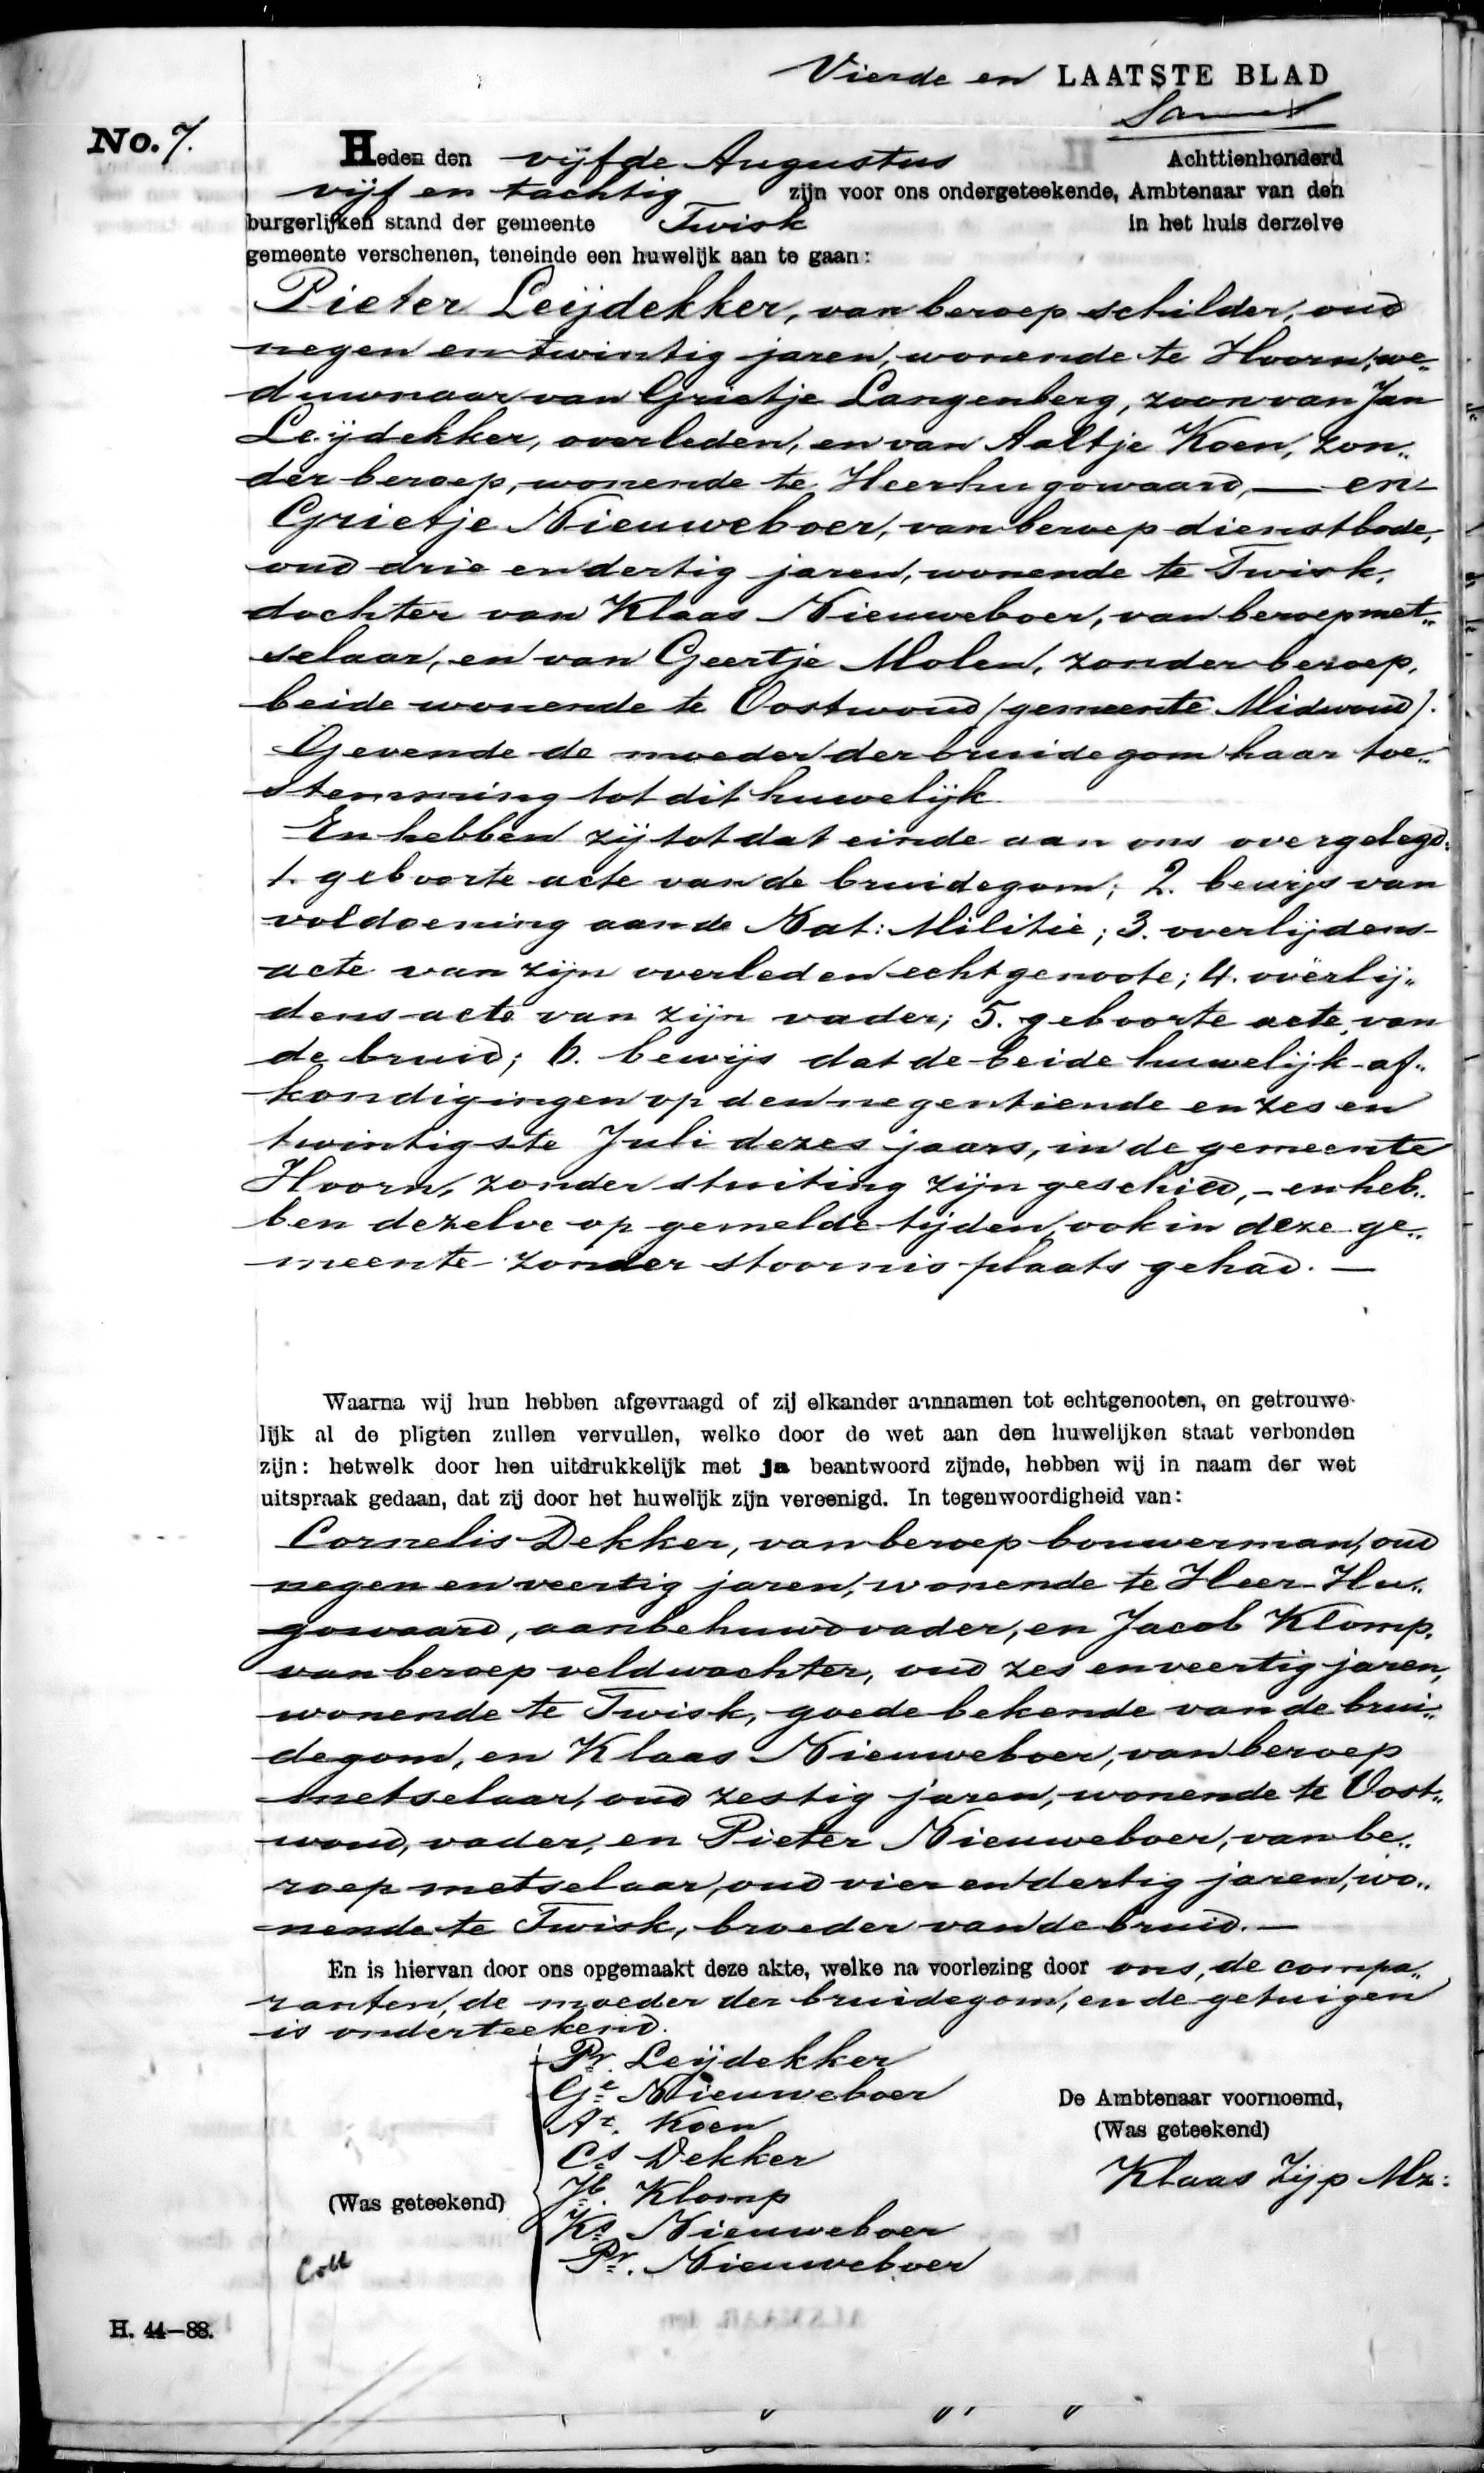 Vierde en LAATSTE BLAD
No. 7.
Heden den vijfde Augustus Achttienhonderd
vijf en tachtig zijn voor ons ondergeteekende, Ambtenaar van den
burgerlijken stand der gemeente Twisk in het huis derzelve
gemeente verschenen, teneinde een huwelijk aan te gaan:
Pieter Leijdekker, van beroep schilder, oud
negen en twintig jaren, wonende te Hoorn, we„
duwnaar van Grietje Langenberg, zoon van Jan
Leijdekker, overleden, en van Aaltje Koen, zon„
der beroep, wonende te Heerhugowaard, — en
Grietje Nieuweboer, van beroep dienstbode,
oud drie en dertig jaren, wonende te Twisk,
dochter van Klaas Nieuweboer, van beroep met„
selaar, en van Geertje Molen, zonder beroep,
beide wonende te Oostwoud (gemeente Midwoud).
Gevende de moeder der bruidegom haar toe„
stemming tot dit huwelijk.
En hebben zij tot dat einde aan ons overgelegd:
1. geboorte acte van de bruidegom; 2. bewijs van
voldoening aan de Nat: Militie; 3. overlijdens-
acte van zijn overleden echtgenoote; 4. overlij„
dens acte van zijn vader; 5. geboorte acte van
de bruid; 6. bewijs dat de beide huwelijk-af„
kondigingen op den negentiende en zes en
twintigste Juli dezes jaars, in de gemeente
Hoorn, zonder stuiting zijn geschied, - en heb„
ben dezelve op gemelde tijden, ook in deze ge„
meente zonder stoornis plaats gehad. —
Waarna wij hun hebben afgevraagd of zij elkander aannamen tot echtgenooten, en getrouwe-
lijk al de pligten zullen vervullen, welke door de wet aan den huwelijken staat verbonden
zijn: hetwelk door hen uitdrukkelijk met ja beantwoord zijnde, hebben wij in naam der wet
uitspraak gedaan, dat zij door het huwelijk zijn vereenigd. In tegenwoordigheid van:
Cornelis Dekker, van beroep bouwerman, oud
negen en veertig jaren, wonende te Heer-Hu„
gowaard, aanbehuwdvader, en Jacob Klomp,
van beroep veldwachter, oud zes en veertig jaren,
wonende te Twisk, goede bekende van de brui„
degom, en Klaas Nieuweboer, van beroep
metselaar, oud zestig jaren, wonende te Oost„
woud, vader, en Pieter Nieuweboer, van be„
roep metselaar, oud vier en dertig jaren, wo„
nende te Twisk, broeder van de bruid. —
En is hiervan door ons opgemaakt deze akte, welke na voorlezing door ons, de compa„
ranten, de moeder der bruidegom, en de getuigen
is onderteekend.
Pr. Leijdekker
Ge Nieuweboer
At. Koen
Cs Dekker
Jb. Klomp
Ks Nieuweboer
Pr. Nieuweboer
(Was geteekend)
De Ambtenaar voornoemd,
(Was geteekend)
Klaas Zijp Mz:
Coll
H. 44—88.